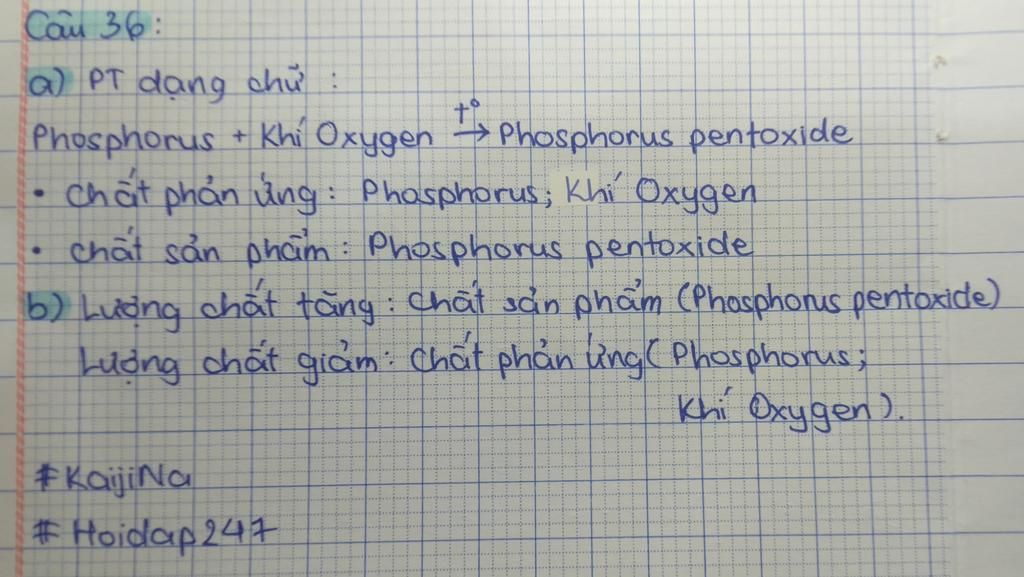 Câu 36:
a) PT dạng chữ :
Phosphorus + Khí Oxygen t° → Phosphorus pentoxide
• Chất phản ứng : Phosphorus; Khí Oxygen
• Chất sản phẩm : Phosphorus pentoxide
b) Lượng chất tăng : Chất sản phẩm (Phosphorus pentoxide)
Lượng chất giảm : Chất phản ứng ( Phosphorus;
Khí Oxygen).
#KaijiNa
#Hoidap247